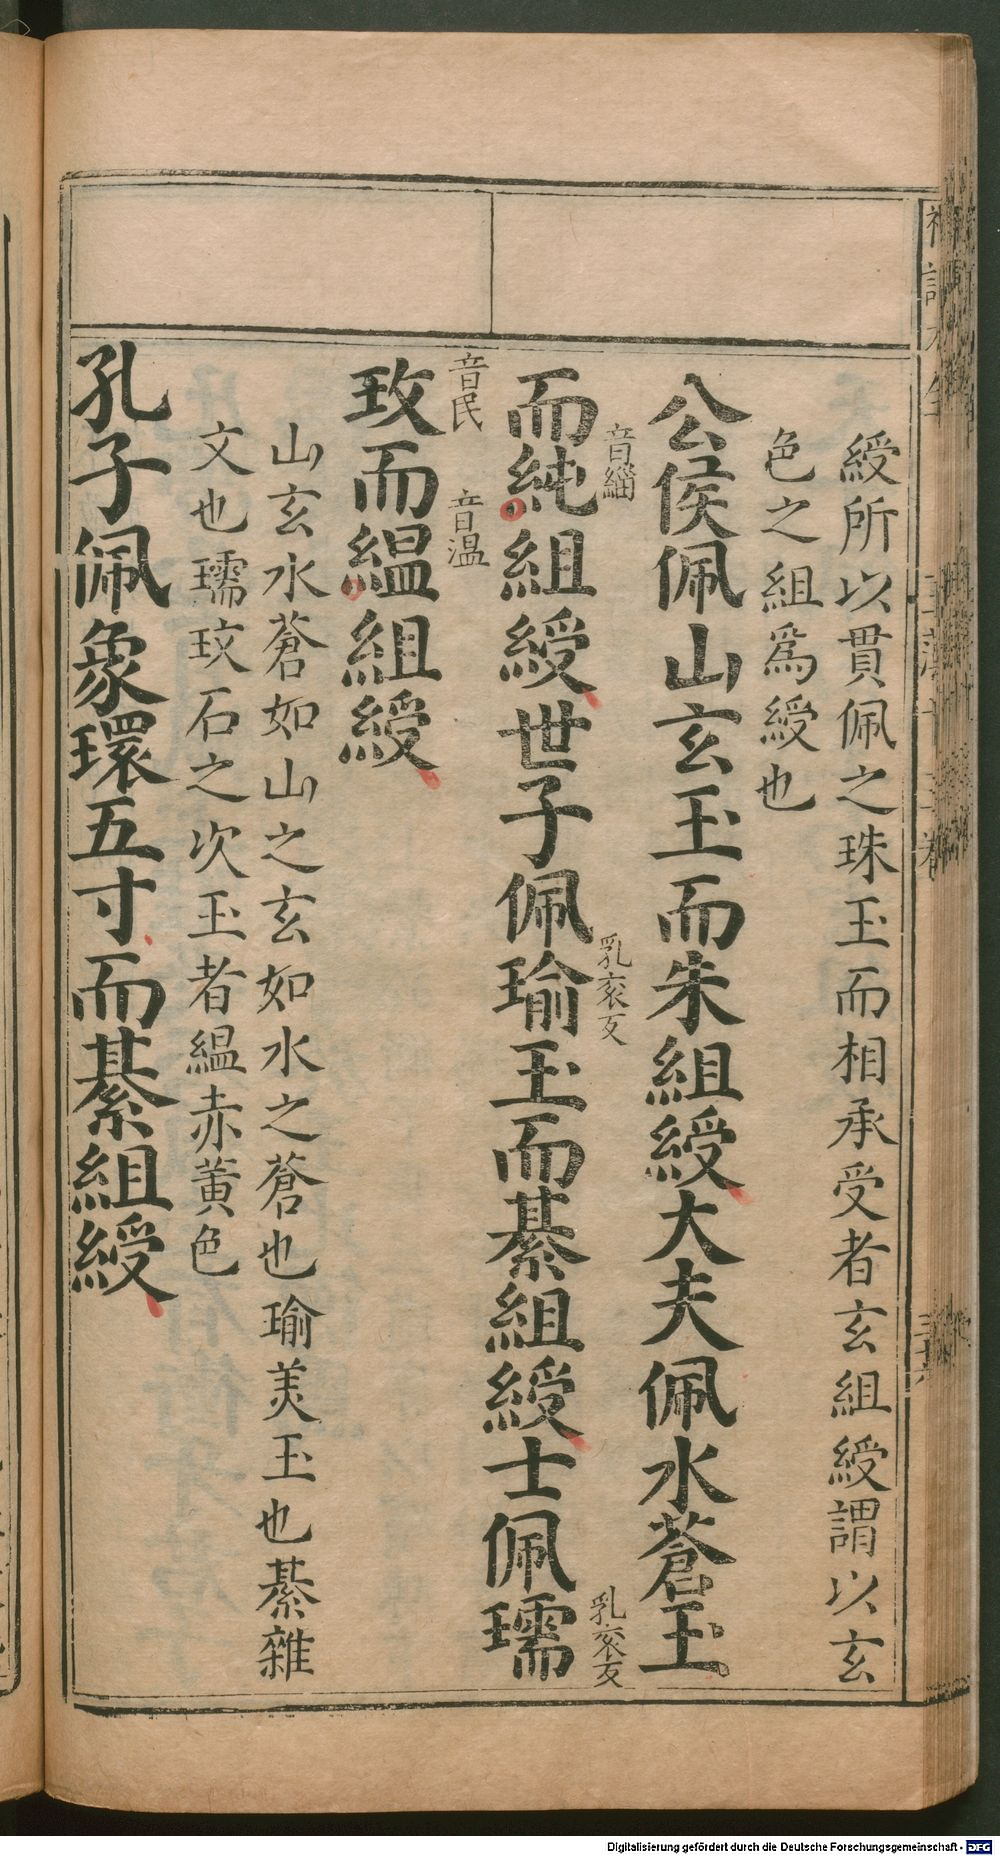 綬所以貫佩之珠玉而相承受者玄組綬謂以玄
色之組爲綬也
公侯佩山玄玉而朱組綬大夫佩水蒼玉
音緇
而純組綬世子佩瑜玉而綦組綬士佩瓀
乳衮反
乳衮反
音民
音温
玫而縕組綬
山玄水蒼如山之玄如水之蒼也瑜美玉也綦雜
文也瓀玟石之次玉者縕赤黄色
孔子佩象環五寸而綦組綬
Digitalisierung gefördert durch die Deutsche Forschungsgemeinschaft - DFG